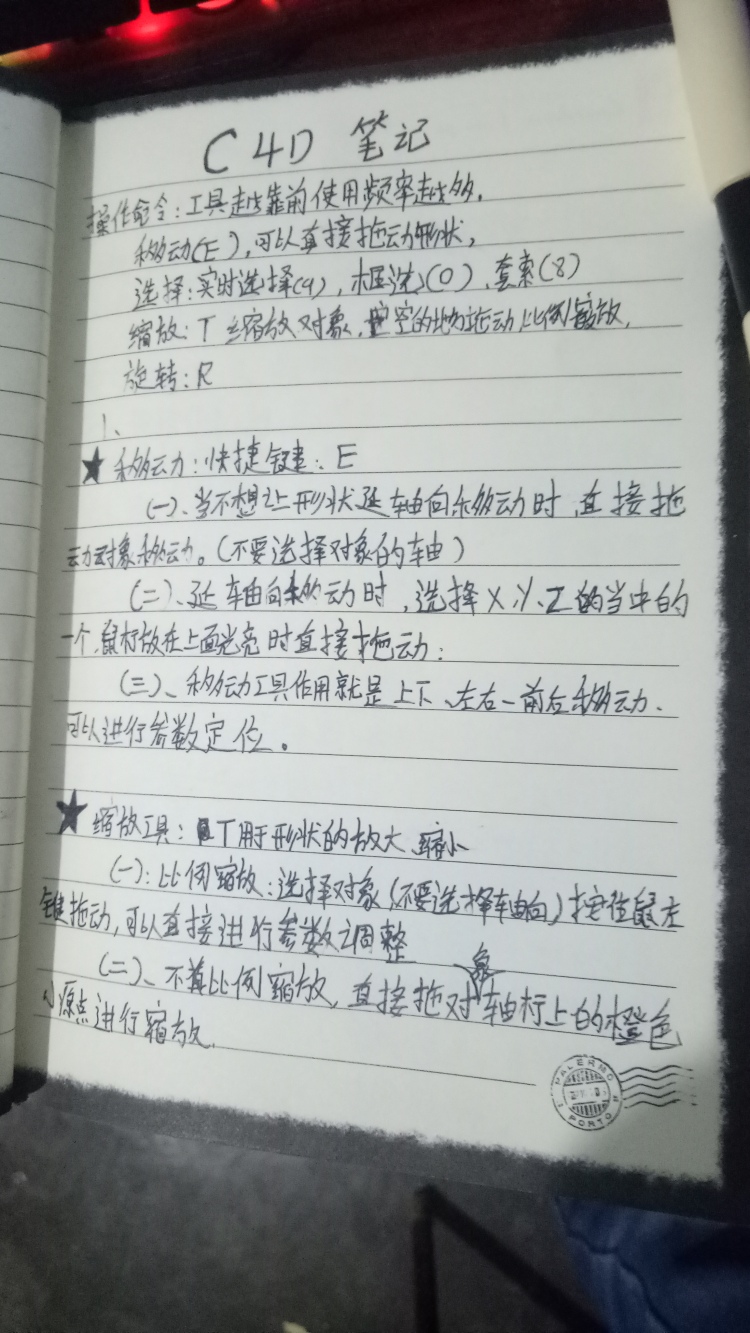 C4D 笔记
操作命令：工具越靠前使用频率越多.
移动(E),可以直接拖动形状,
选择：实时选择(9),框选(0)、套索(8)
缩放：T 缩放对象,空的地方拖动比例缩放,
旋转：R
1、
★ 移动：快捷键：E
(一)、当不想让形状延轴向移动时,直接拖
动对象移动。(不要选择对象的轴)
(二)、延轴向移动时,选择X、Y、Z的当中的
一个,鼠标放在上面光亮时直接拖动：
(三)、移动工具作用就是上下、左右－前后移动.
可以进行参数定位。
★ 缩放工具：T用于形状的放大、缩小
(一)：比例缩放：选择对象(不要选择轴向)按住鼠左
键拖动,可以直接进行参数调整
(二)、不算比例缩放,直接拖对象轴标上的橙色
小原点进行缩放.
PALERMO
PORTO